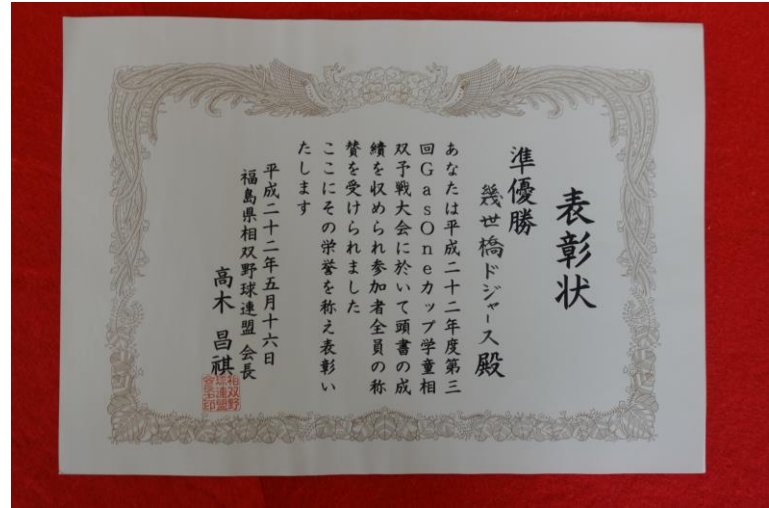 表彰状
準優勝
幾世橋ドジャース殿
あなたは平成二十二年度第三
回GasOneカップ学童相
双予戦大会に於いて頭書の成
績を収められ参加者全員の称
賛を受けられました
ここにその栄誉を称え表彰い
たします
平成二十二年五月十六日
福島県相双野球連盟 会長
高木昌祺
相双野
球連盟
会長之印